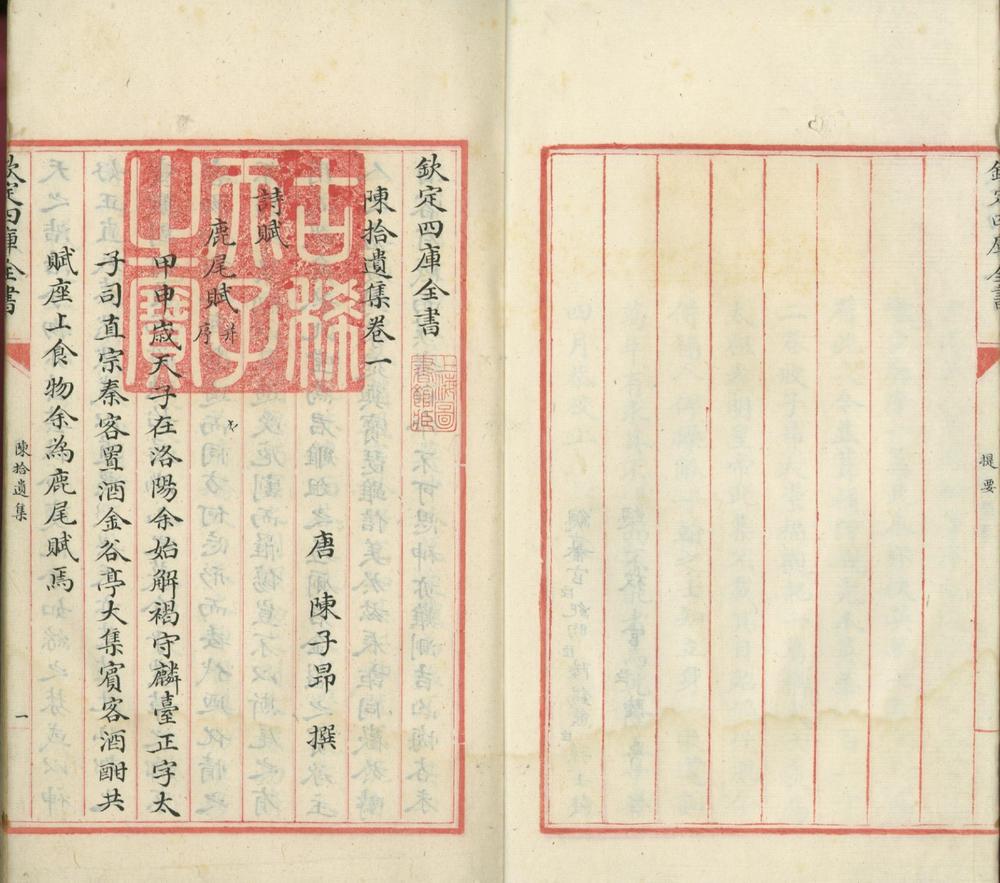 欽定四庫全書
提要
欽定四庫全書
陳拾遺集卷一
唐 陳子昂 撰
詩賦
鹿尾賦并序
甲申歲天子在洛陽余始解褐守麟臺正字太
子司直宗秦客置酒金谷亭大集賓客酒酣共
賦座上食物余為鹿尾賦焉
欽定四庫全書
陳拾遺集
一
古稀天子之寶
上海圖書館藏